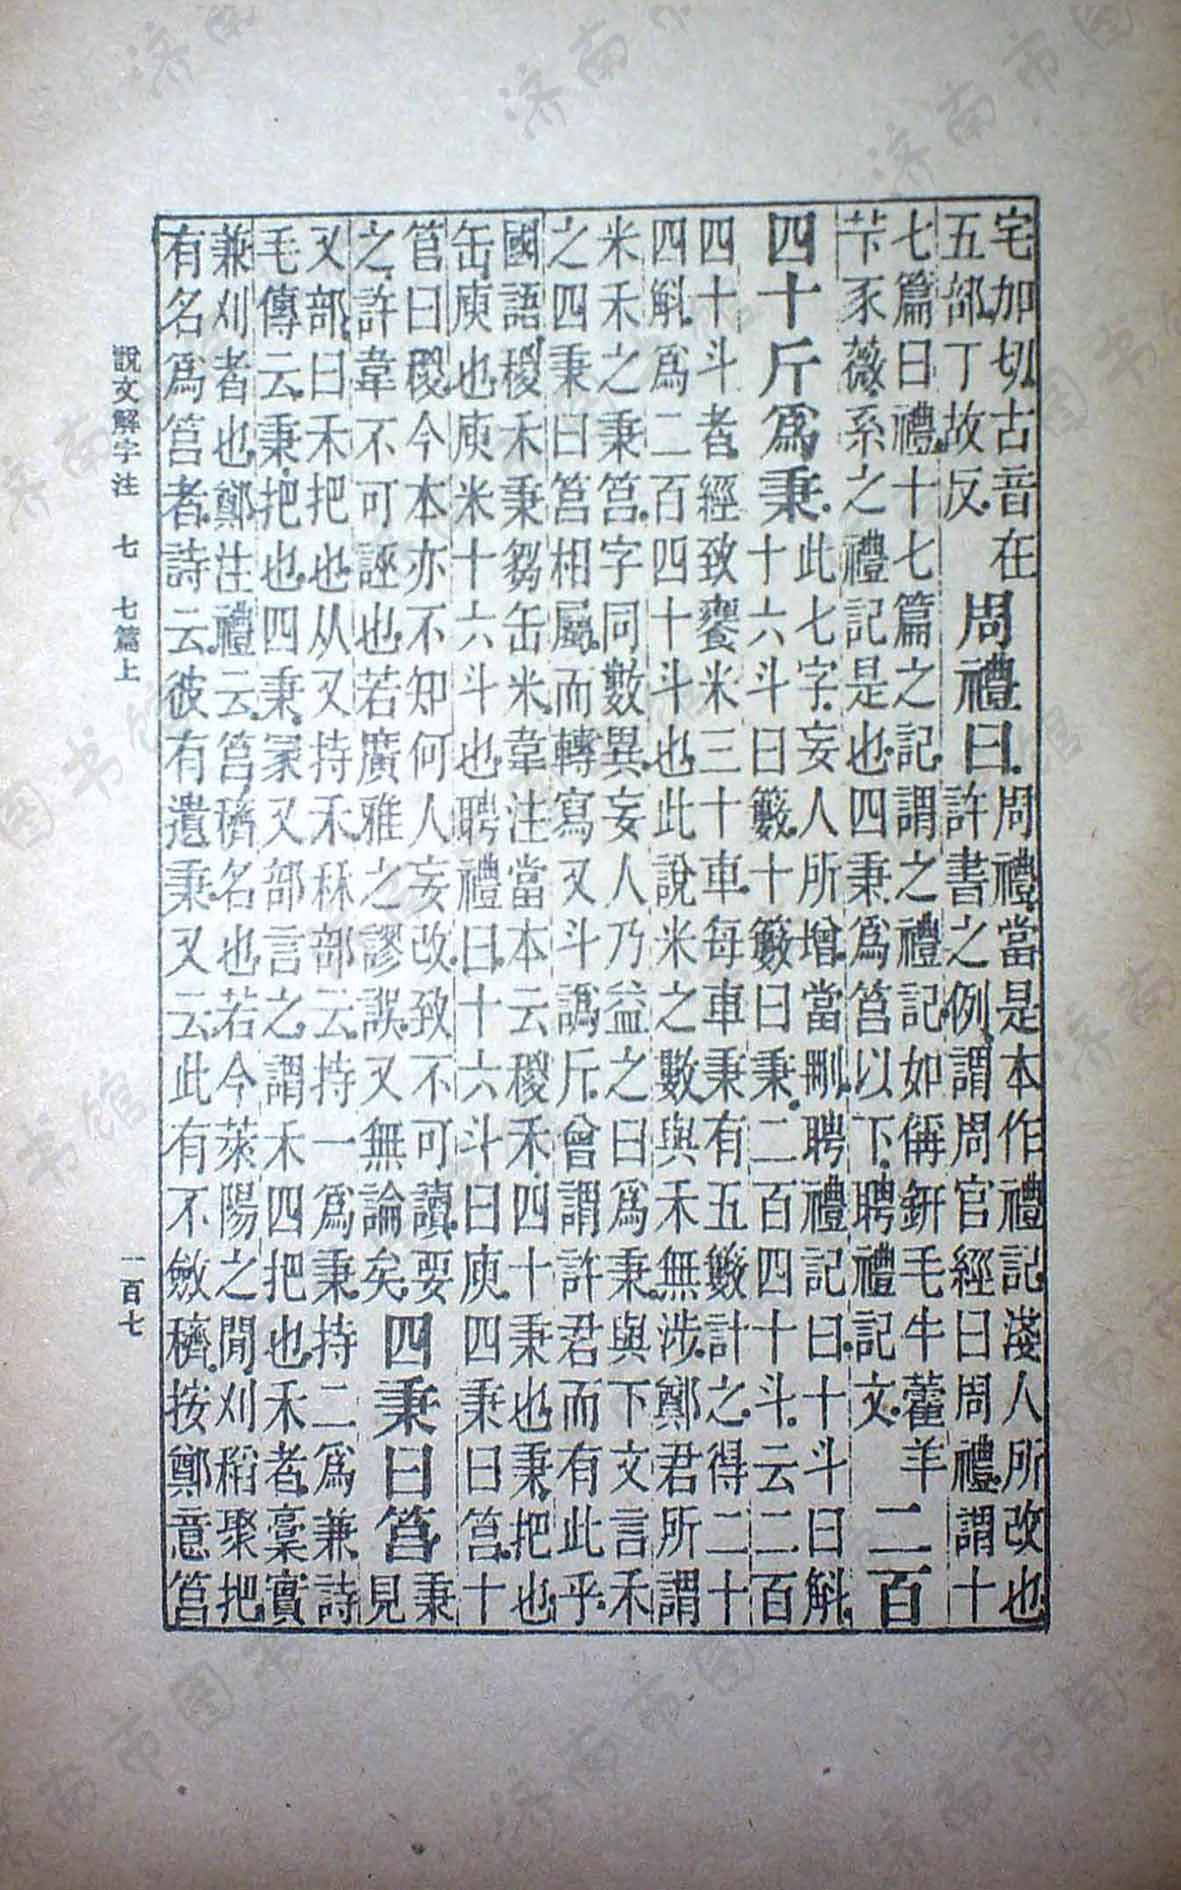 宅加切古音在
五部丁故反
周禮曰
周禮當是本作禮記淺人所改也
許書之例謂周官經曰周禮謂十
七篇曰禮十七篇之記謂之禮記如偁鈃毛牛藿羊
苄豕薇系之禮記是也四秉爲筥以下聘禮記文
二百
四十斤爲秉
此七字妄人所增當刪聘禮記曰十斗曰斛
十六斗曰籔十籔曰秉二百四十斗云二百
四十斗者經致饔米三十車每車秉有五籔計之得二十
四斛爲二百四十斗也此說米之數與禾無涉鄭君所謂
米禾之秉筥字同數異妄人乃益之曰爲秉與下文言禾
之四秉曰筥相屬而轉寫又斗譌斤曾謂許君而有此乎
國語稯禾秉芻缶米韋注當本云稯禾四十秉也秉把也
缶庾也庾米十六斗也聘禮曰十六斗曰庾四秉曰筥十
筥曰稯今本亦不知何人妄改致不可讀要
之許韋不可誣也若廣雅之謬誤又無論矣
四秉曰筥
秉
見
又部曰禾把也从又持禾秝部云持一爲秉持二爲兼詩
毛傳云秉把也四秉冡又部言之謂禾四把也禾者槀實
兼刈者也鄭注禮云筥穧名也若今萊陽之閒刈稻聚把
有名爲筥者詩云彼有遺秉又云此有不斂穧按鄭意筥
說文解字注 七 七篇上 一百七